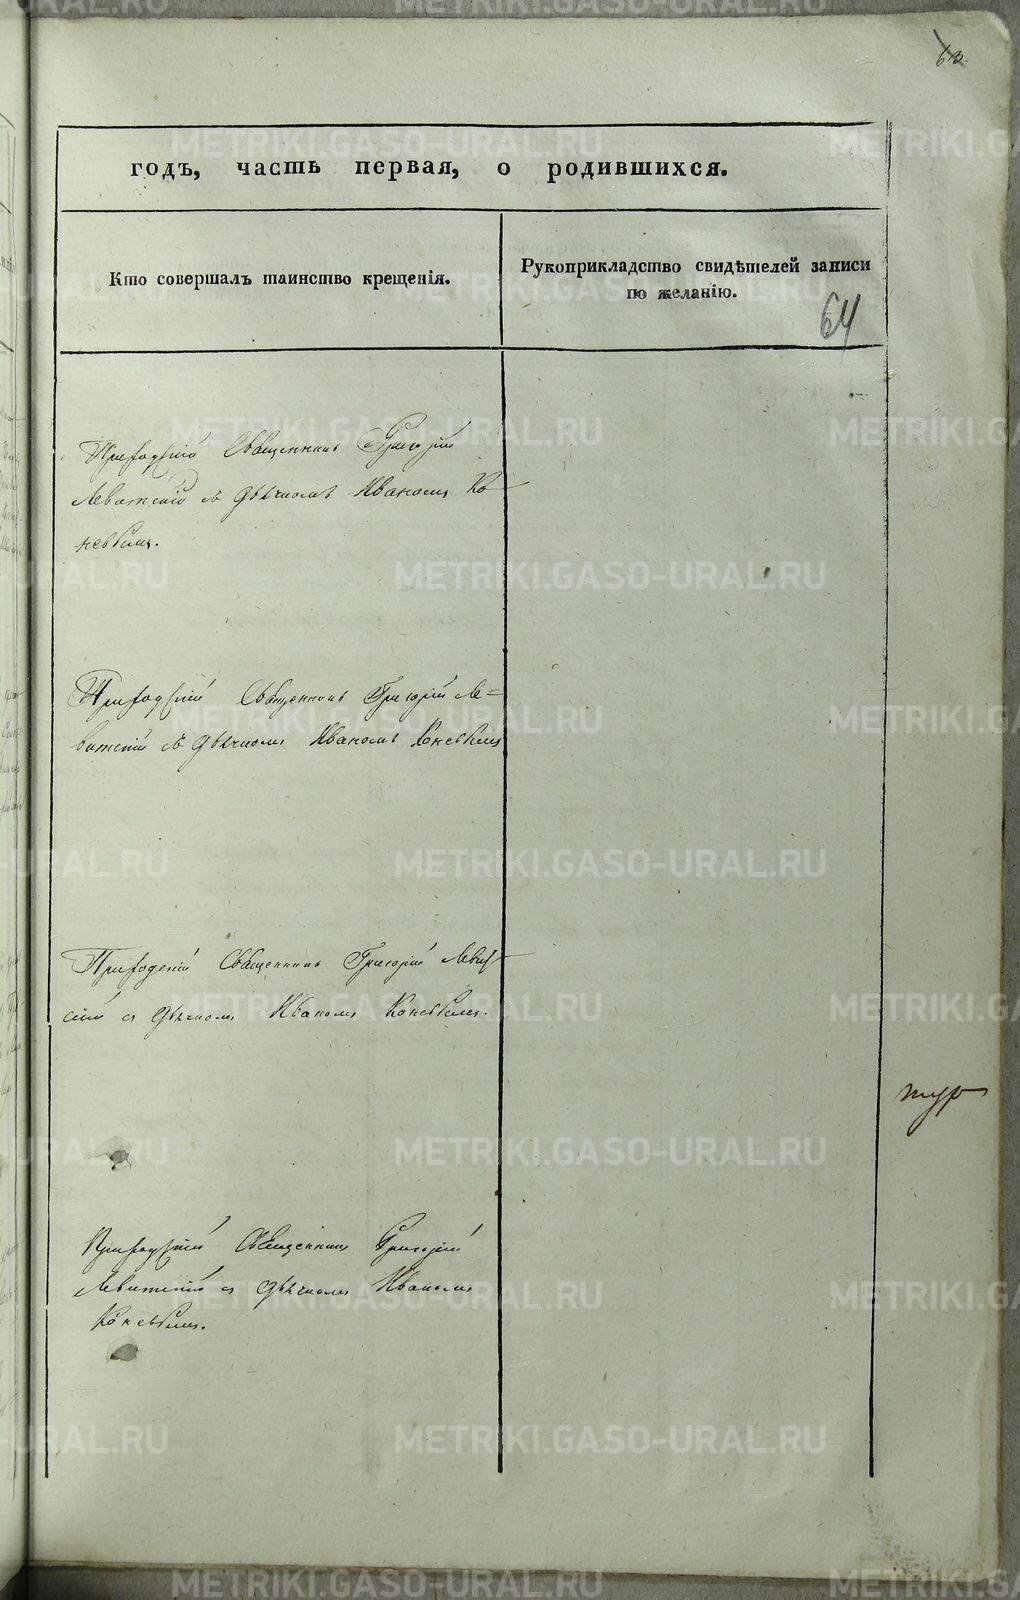 63.
годъ, часть первая, о родившихся.
Кто совершалъ таинство крещенія.
Рукоприкладство свидѣтелей записи
по желанію.
64
Приходскій Священникъ Григорій
Левитскій съ дьячкомъ Иваномъ Ко-
невымъ.
Приходскій Священникъ Григорій Ле=
витскій съ дьячкомъ Иваномъ Коневымъ
Приходскій Священникъ Григорій Левит-
скій съ дьячкомъ Иваномъ Коневымъ.
Приходскій Священникъ Григорій
Левитскій съ дьячкомъ Иваномъ
Коневымъ.
METRIKI.GASO-URAL.RU